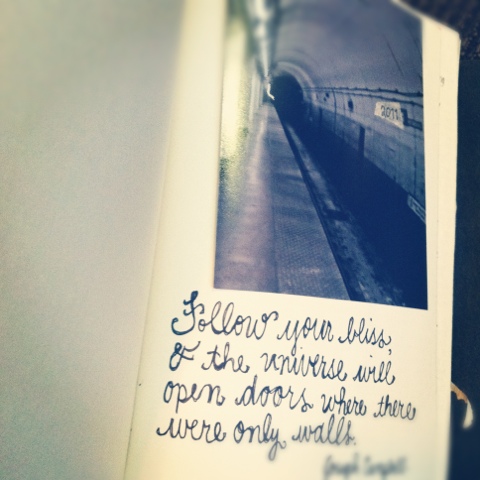 2011
Follow your bliss,
& the universe will
open doors where there
were only walls.
Joseph Campbell